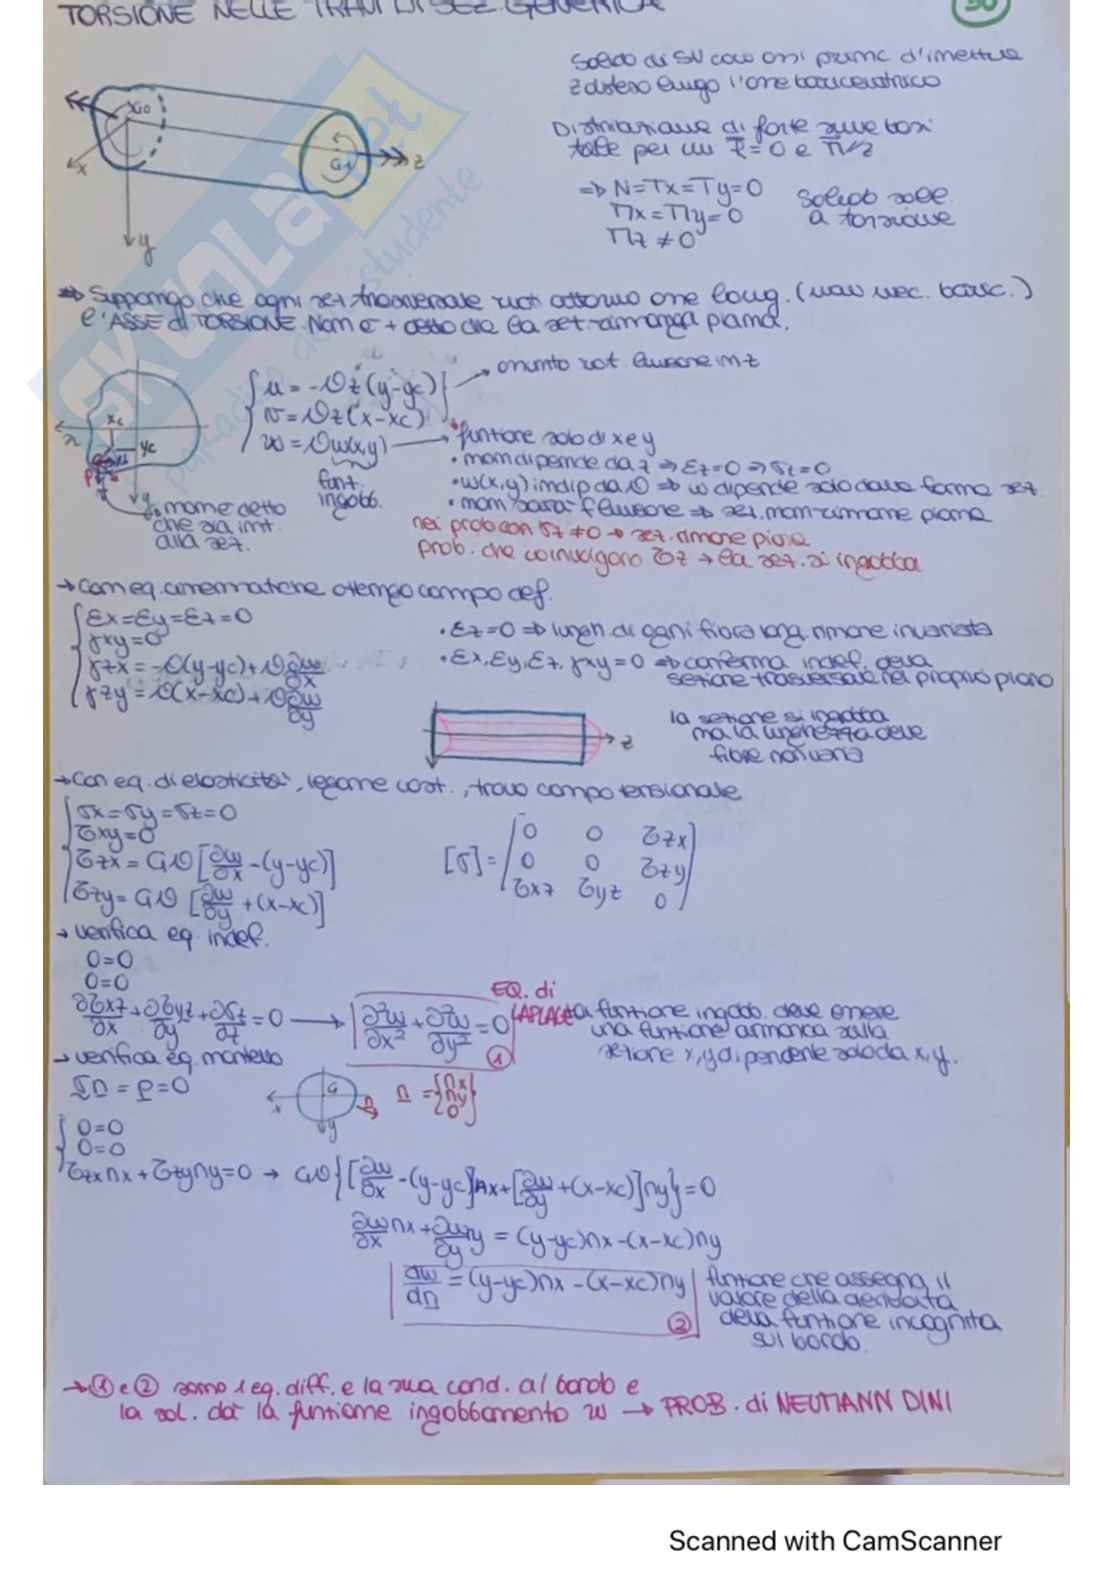 TORSIONE NELLE TRAVI DI SEZ GENERICA
30
Solido di SV con assi princ d'inerzia
z disteso lungo l'asse baricentrico
Distribuzione di forze sulle basi
tale per cui R=0 e M∥z
⇒ N=Tx=Ty=0
Mx=My=0
Mz≠0
solido sogg.
a torsione
G0
x
y
G1
z
⇒ Suppongo che ogni sez. trasversale ruoti attorno asse long. (non nec. baric.)
L'ASSE di TORSIONE. Non è + detto che la sez. rimanga piana.
u = -Θz(y-yc)
v = Θz(x-xc)
w = Θω(x,y)
→ angolo rot. lineare in z
→ funzione solo di x e y
• non dipende da z ⇒ εz=0 ⇒ σz=0
• ω(x,y) indip da Θ ⇒ ω dipende solo dalla forma sez.
• non sarà f lineare ⇒ sez. non rimane piana
funz.
ingobb.
x
xc
yc
P
y
nei prob con σz≠0 → sez. rimane piana
prob. che coinvolgono τz → la sez. si ingobba
non è detto
che sia int.
alla sez.
→ Con eq. cinematiche ottengo campo def.
εx=εy=εz=0
γxy=0
γzx = -Θ(y-yc)+Θ∂ω/∂x
γzy = Θ(x-xc)+Θ∂ω/∂y
• εz=0 ⇒ lungh. di ogni fibra long. rimane invariata
• εx, εy, εz, γxy=0 ⇒ conferma indef. della
sezione trasversale nel proprio piano
z
la sezione si ingobba
ma la lunghezza delle
fibre non varia
→ Con eq. di elasticità, legame cost., trovo campo tensionale
σx=σy=σz=0
τxy=0
τzx = GΘ [∂ω/∂x -(y-yc)]
τzy = GΘ [∂ω/∂y +(x-xc)]
[σ] =
0 0 τzx
0 0 τzy
τxz τyz 0
→ verifica eq. indef.
0=0
0=0
∂τxz/∂x + ∂τyz/∂y + ∂σz/∂z = 0 → ∂²ω/∂x² + ∂²ω/∂y² = 0 ①
EQ. di
LAPLACE
La funzione ingobb. deve essere
una funzione armonica sulla
sezione x,y dipendente solo da x,y.
→ verifica eq. mantello
σn = p = 0
x
G
n
y
n = {nx ny 0}
0=0
0=0
τzx nx + τzy ny = 0 → GΘ{[∂ω/∂x -(y-yc)]nx+[∂ω/∂y +(x-xc)]ny}=0
∂ω/∂x nx + ∂ω/∂y ny = (y-yc)nx -(x-xc)ny
dω/dn = (y-yc)nx -(x-xc)ny ②
funzione che assegna il
valore della derivata
della funzione incognita
sul bordo.
→ ① e ② sono 1 eq. diff. e la sua cond. al bordo e
la sol. dà la funzione ingobbamento ω → PROB. di NEUMANN DINI
Scanned with CamScanner
SKUOLA.net